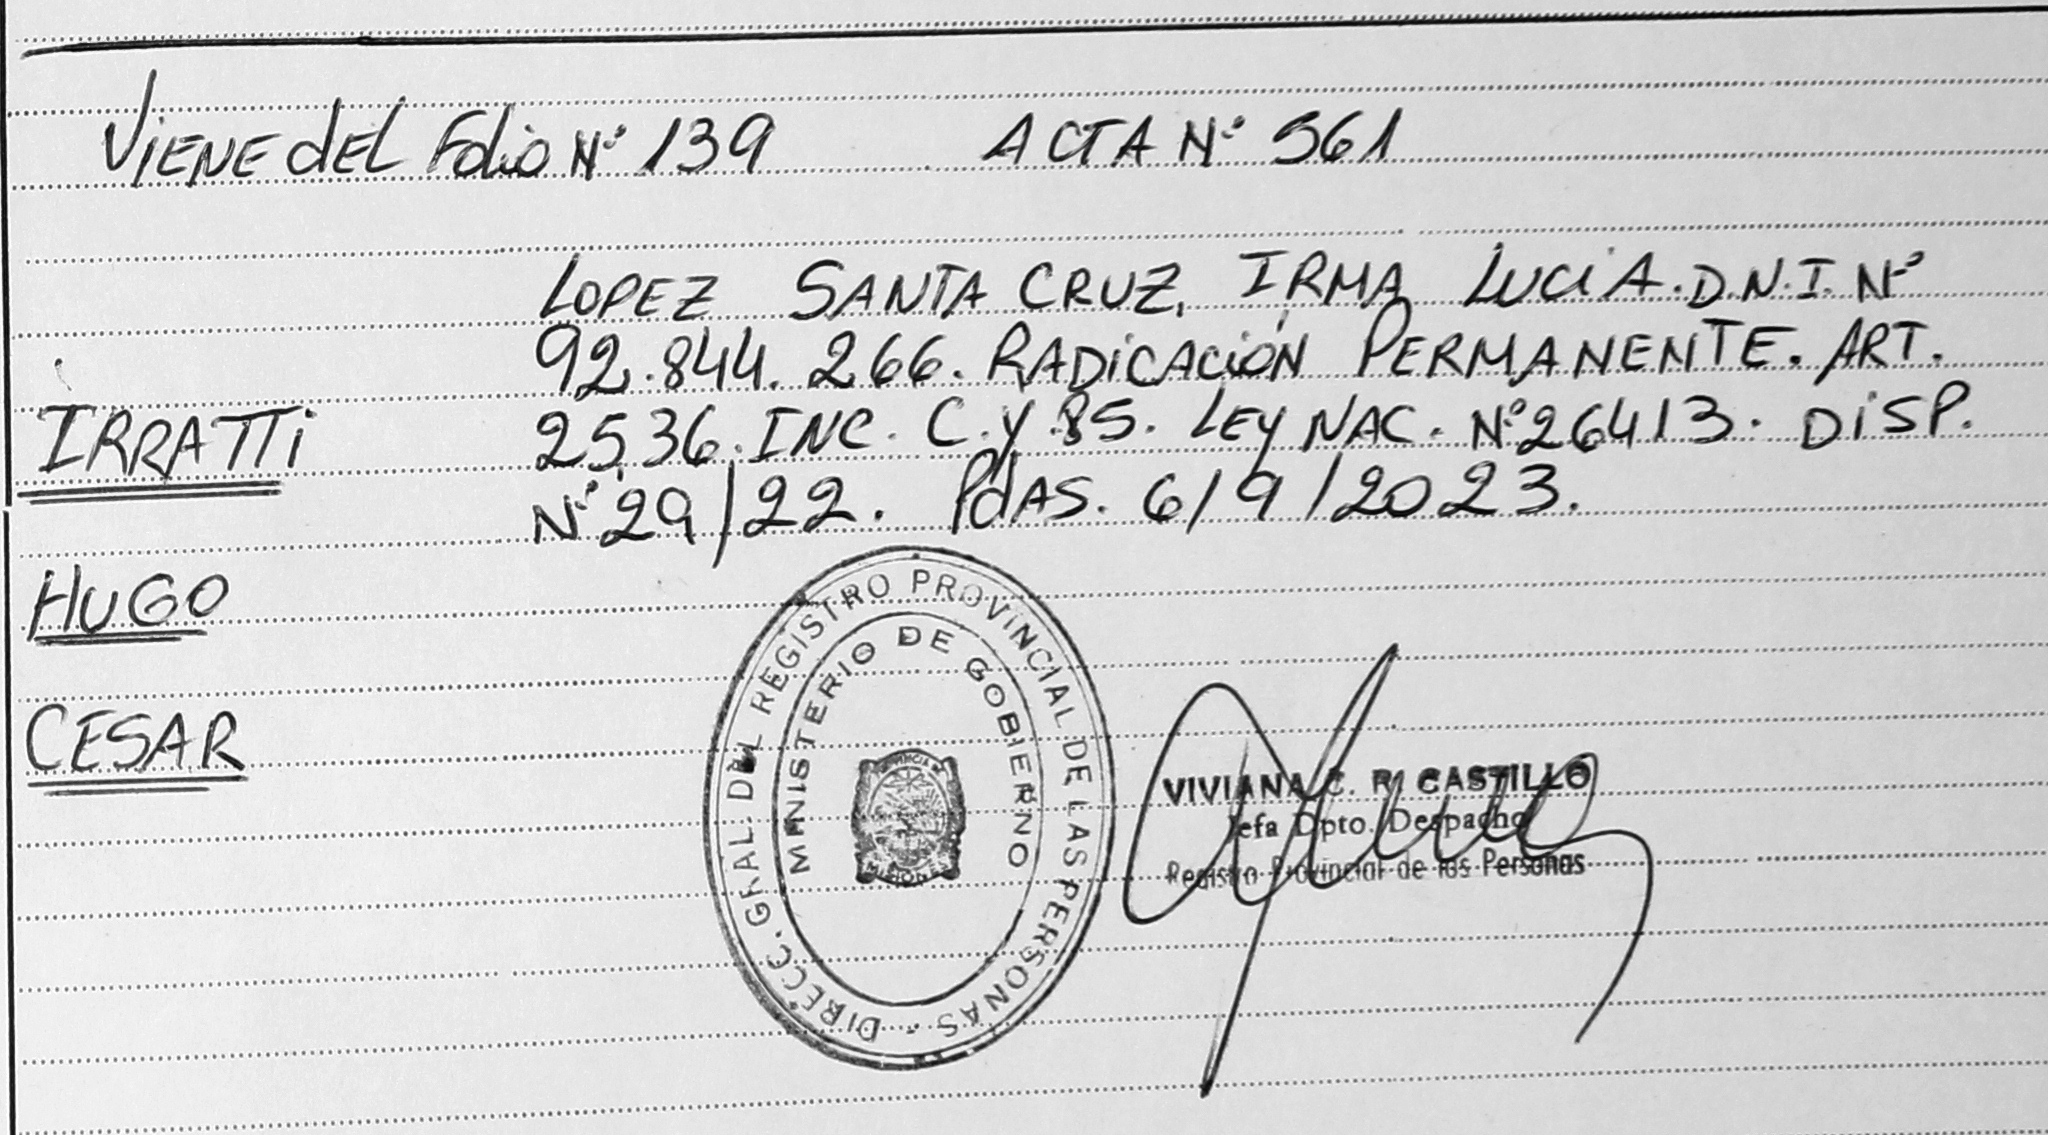 Viene del Folio Nº 139 ACTA Nº 561
LOPEZ SANTA CRUZ, IRMA LUCIA. D.N.I. Nº
92.844.266. RADICACIÓN PERMANENTE. ART.
IRRATTI
2536. INC. C. y 85. LEY NAC. Nº 26413. DISP.
Nº 29/22. PdAS. 6/9/2023.
HUGO
CESAR
DIRECC. GRAL. DEL REGISTRO PROVINCIAL DE LAS PERSONAS -
MINISTERIO DE GOBIERNO
PROVINCIA DE
MISIONES
VIVIANA C. R. CASTILLO
Jefa Dpto. Despacho
Registro Provincial de las Personas